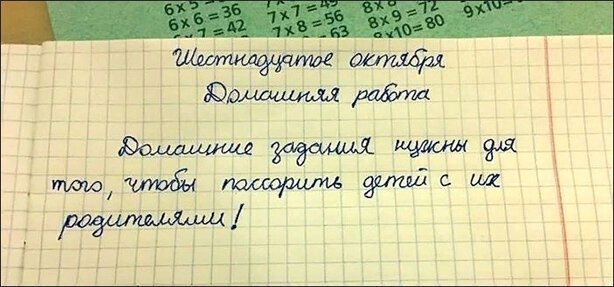 6 x 5 =
6 x 6 = 36
x 7 = 42
7 x 7 = 49
7 x 8 = 56
= 63
8 x 8
8 x 9 = 72
8x10= 80
9x10=
Шестнадцатое октября
Домашняя работа
Домашние задания нужны для
того, чтобы поссорить детей с их
родителями!